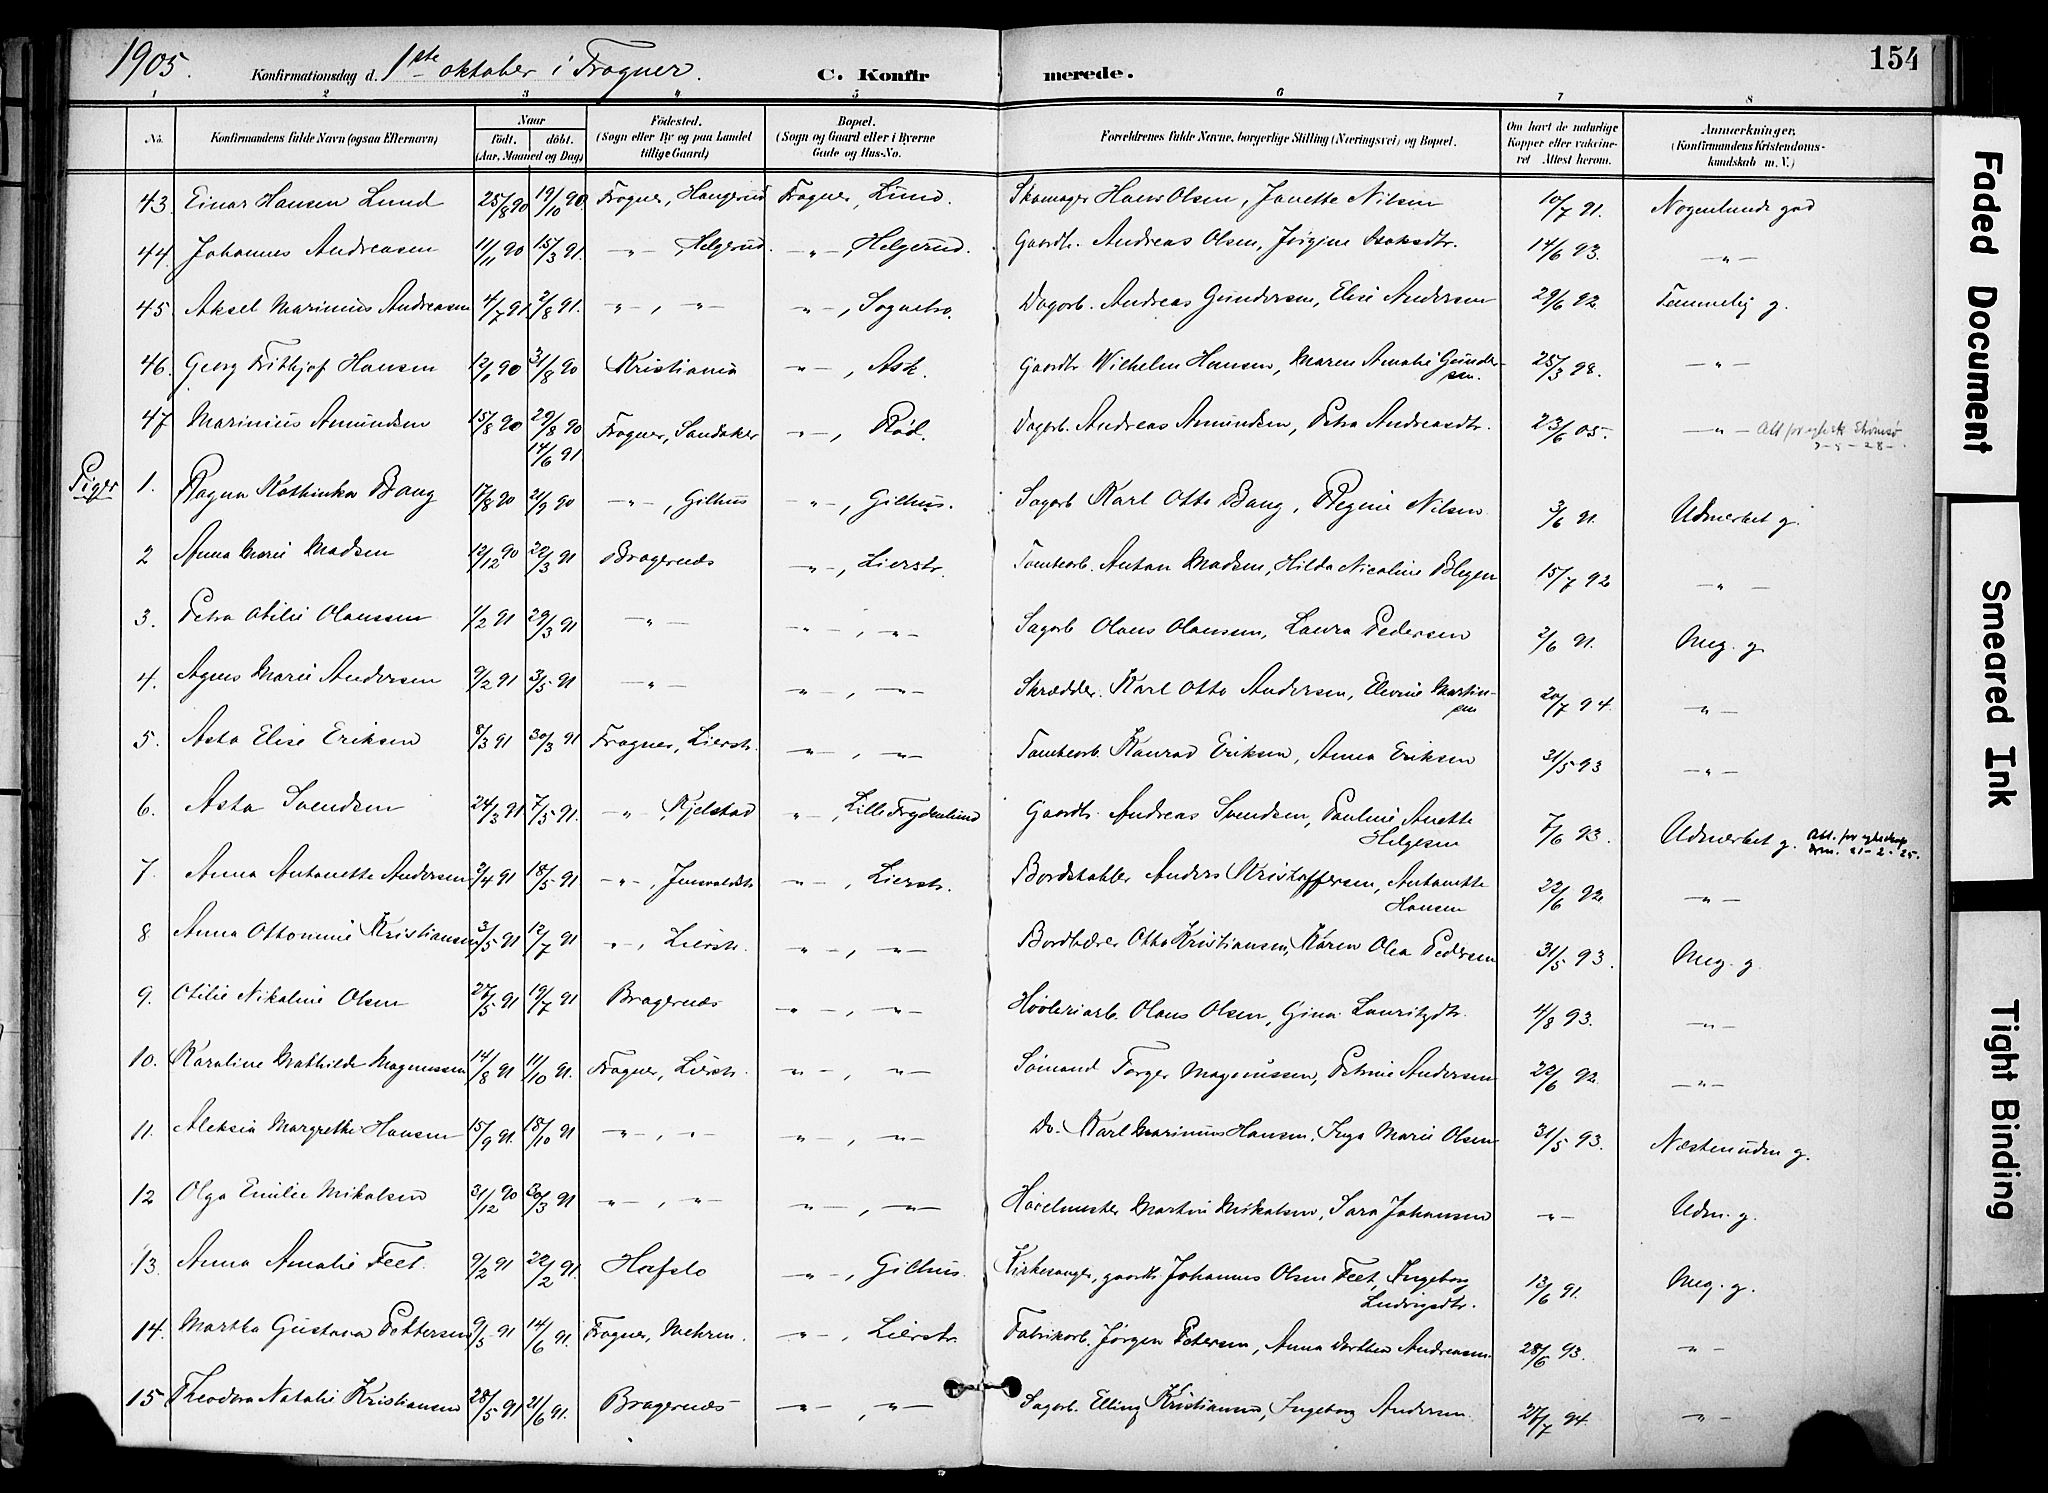 1905. Konfirmationsdag d. 1ste oktober i Frogner. C. Konfir merede. 154
1 2 3 4 5 6 7 8
No. Konfirmandens fulde Navn (ogsaa Efternavn) Naar født. døbt. (Aar, Maaned og Dag) Fødested. (Sogn eller By og paa Landet tillige Gaard) Bopæl. (Sogn og Gaard eller i Byerne Gade og Hus-No. Forældrenes fulde Navne, borgerlige Stilling (Næringsvei) og Bopæl. Om havt de naturlige Kopper eller vakcineret Attest herom. Anmærkninger, (Konfirmandens Kristendomskundskab m. V.)
43. Einar Hansen Lund 25/8 90 19/10 90. Frogner, Haugerud Frogner, Lund. Skomager Hans Olsen, Janette Nilsen 10/7 91. Nogenlunde god
44. Johannes Andreasen 11/11 90 15/3 91. -"-, Helgerud. -"-, Helgerud. Gaardb. Andreas Olsen, Jørgine Isaksdtr. 14/6 93. -"-
45. Aksel Marinius Andreasen 4/7 91 2/8 91. -"-, -"- -"-, Sognebro. Dagarb. Andreas Gundersen, Elise Andersen 29/6 92. Temmelig g.
46. Georg Frithjof Hansen 12/6 90 31/8 90 Kristiania -"-, Ask. Gaardbr Wilhelm Hansen, Maren Amalie Gundersen. 25/3 98. -"-
47 Marinius Amundsen 15/8 90 29/8 90 14/6 91 Frogner, Sandaker -"-, Rød. Dagarb. Andreas Amundsen, Petra Andreasdtr. 23/6 05. -"-
Piger
1. Ragna Kathinka Bang 17/8 90 21/9 90 -"-, Gilhus -"-, Gilhus. Sagarb Karl Otto Bang, Regine Nilsen 3/6 91. Udmærket g.
2 Anna Marie Madsen 12/12 90 22/3 91 Bragernæs -"-, Lierstr. Tomtearb. Anton Madsen, Hilda Nicoline Blegen 15/7 92 -"-
3. Petra Otilie Olaussen 1/2 91 29/3 91 -"- -"-, -"- Sagarb Olaus Olaussen, Laura Pedersen 2/6 91. Meg. g
4. Agnes Marie Andersen 9/2 91 3/5 91 -"- -"-, -"- Skrædder. Karl Otto Andersen, Elevine Martinsen 20/7 94. -"-
5. Asta Elise Eriksen 8/3 91 30/3 91 Frogner, Lierstr. -"-, -"- Tomtearb. Konrad Eriksen, Anna Eriksen 31/5 93 -"-
6. Asta Svendsen 24/3 91 7/5 91. -"-, Kjelstad -"-, Lille Frydenlund Gaardbr. Andreas Svendsen, Pauline Anette Helgesen 7/6 93. Udmærket g.
7. Anna Antonette Andersen 2/4 91 18/5 91 -"-, -"-, Lierstr. Bordstabler Anders Kristoffersen, Antonette Hansen 22/6 92. -"-
8 Anna Ottomine Kristiansen 3/5 91 12/7 91 -"-, Lierstr. -"-, -"- Bordbærer Otto Kristiansen, Karen Olea Pedersen 31/5 93. Meg. g.
9. Otilie Nikoline Olsen 27/5 91 19/7 91 Bragernæs -"-, -"- Høvleriarb. Olaus Olsen, Gina Lauritzdtr. 4/8 93. -"-
10. Karoline Mathilde Magnussen 14/8 91 11/10 91. Frogner, Lierstr. -"-, -"- Sømand Torger Magnussen, Petrine Andersen 22/6 92. -"-
11. Aleksia Margrethe Hansen 15/9 91. 18/10 91 -"-, -"- -"-, -"- Do. Karl Marinius Hansen, Inga Marie Olsen 31/5 93. Næsten uden g.
12 Olga Emilie Mikalsen 31/12 90 30/3 91 -"-, -"- -"-, -"- Høvelmester Martin Mikalsen, Sara Johansen -"- Udm. g.
13. Anna Amalie Feet. 9/2 91 22/2 91. Hafslo -"-, Gilhus. Kirkesanger, gaardb. Johannes Olsen Feet, Ingeborg Ludvigsdtr. 13/6 91. Meg. g.
14. Martha Gustava Pettersen 9/5 91 14/6 91. Frogner, Mehren. -"-, Lierstr. Fabrikarb. Jørgen Petersen, Anna Dorthea Andreasen. 28/6 93. -"-
15 Theodora Natalie Kristiansen 28/5 91 21/6 91. Bragernæs -"-, -"- Sagarb. Elling Kristiansen, Ingeborg Andersen. 27/7 94. -"-
Faded Document
Smeared Ink
Tight Binding